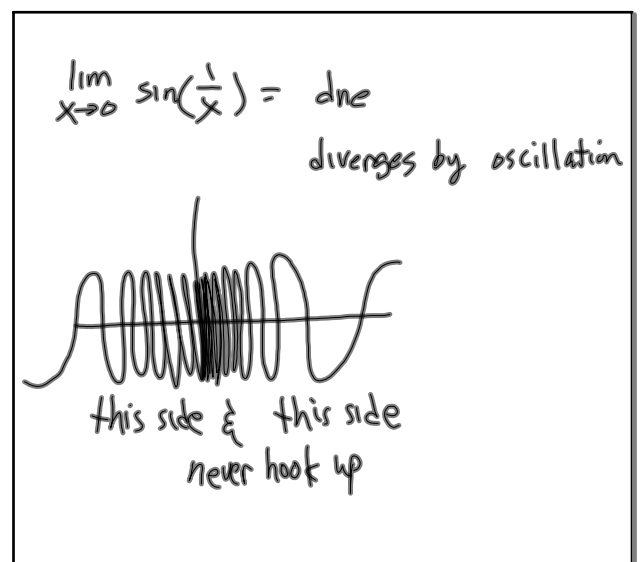 lim x→0 sin(1/x) = dne
diverges by oscillation
this side & this side
never hook up